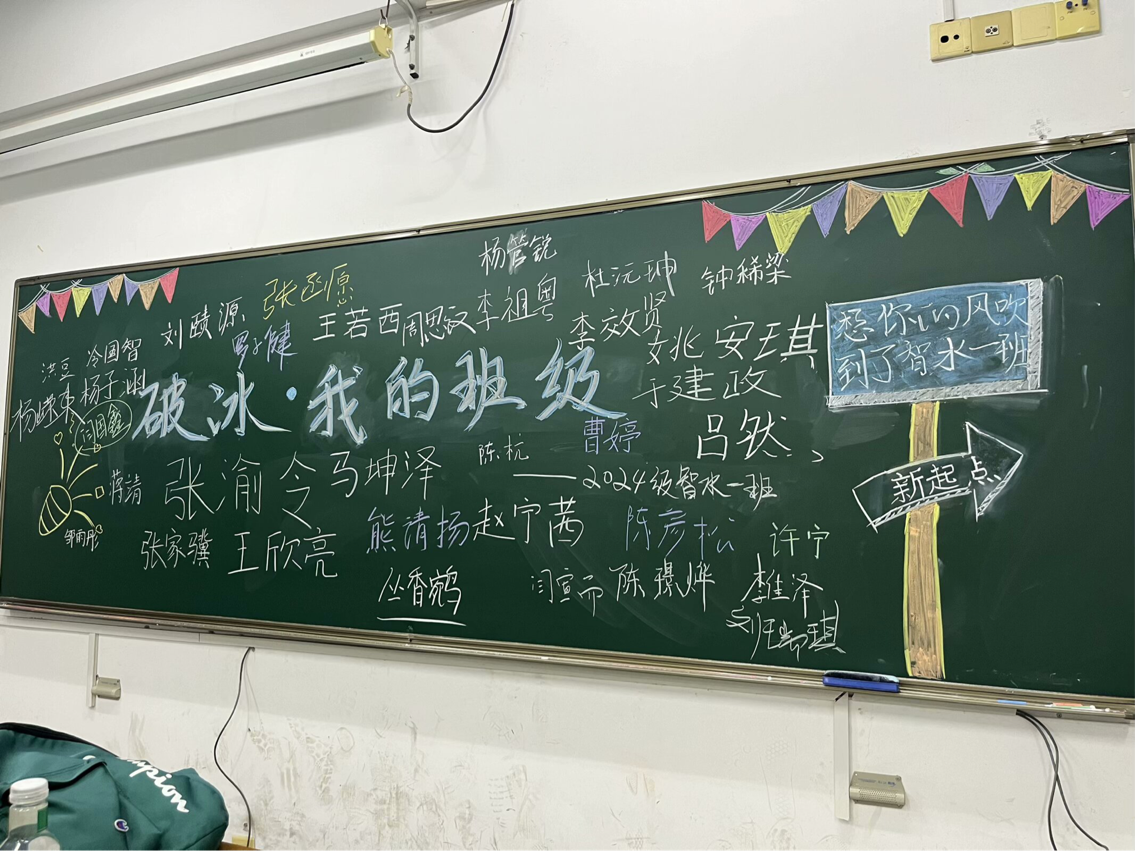 杨管锐
张函源
刘赜源
罗子健
王若西
周思汉
李祖粤
杜沅珅
钟稀梁
李效贤
姚安琪
洪豆
冷国智
杨子涵
杨嵘東
闫国鑫
破冰·我的班级
于建政
曹婷
吕然
陈杭
——2024级智水一班
想你的风吹
到了智水一班
新起点
蒋清
张渝令
马坤泽
邹雨彤
张家骥
王欣亮
熊清扬
赵宁茜
陈彦松
许宁
丛香鹓
闫宣而
陈璟烨
李佳泽
Champion